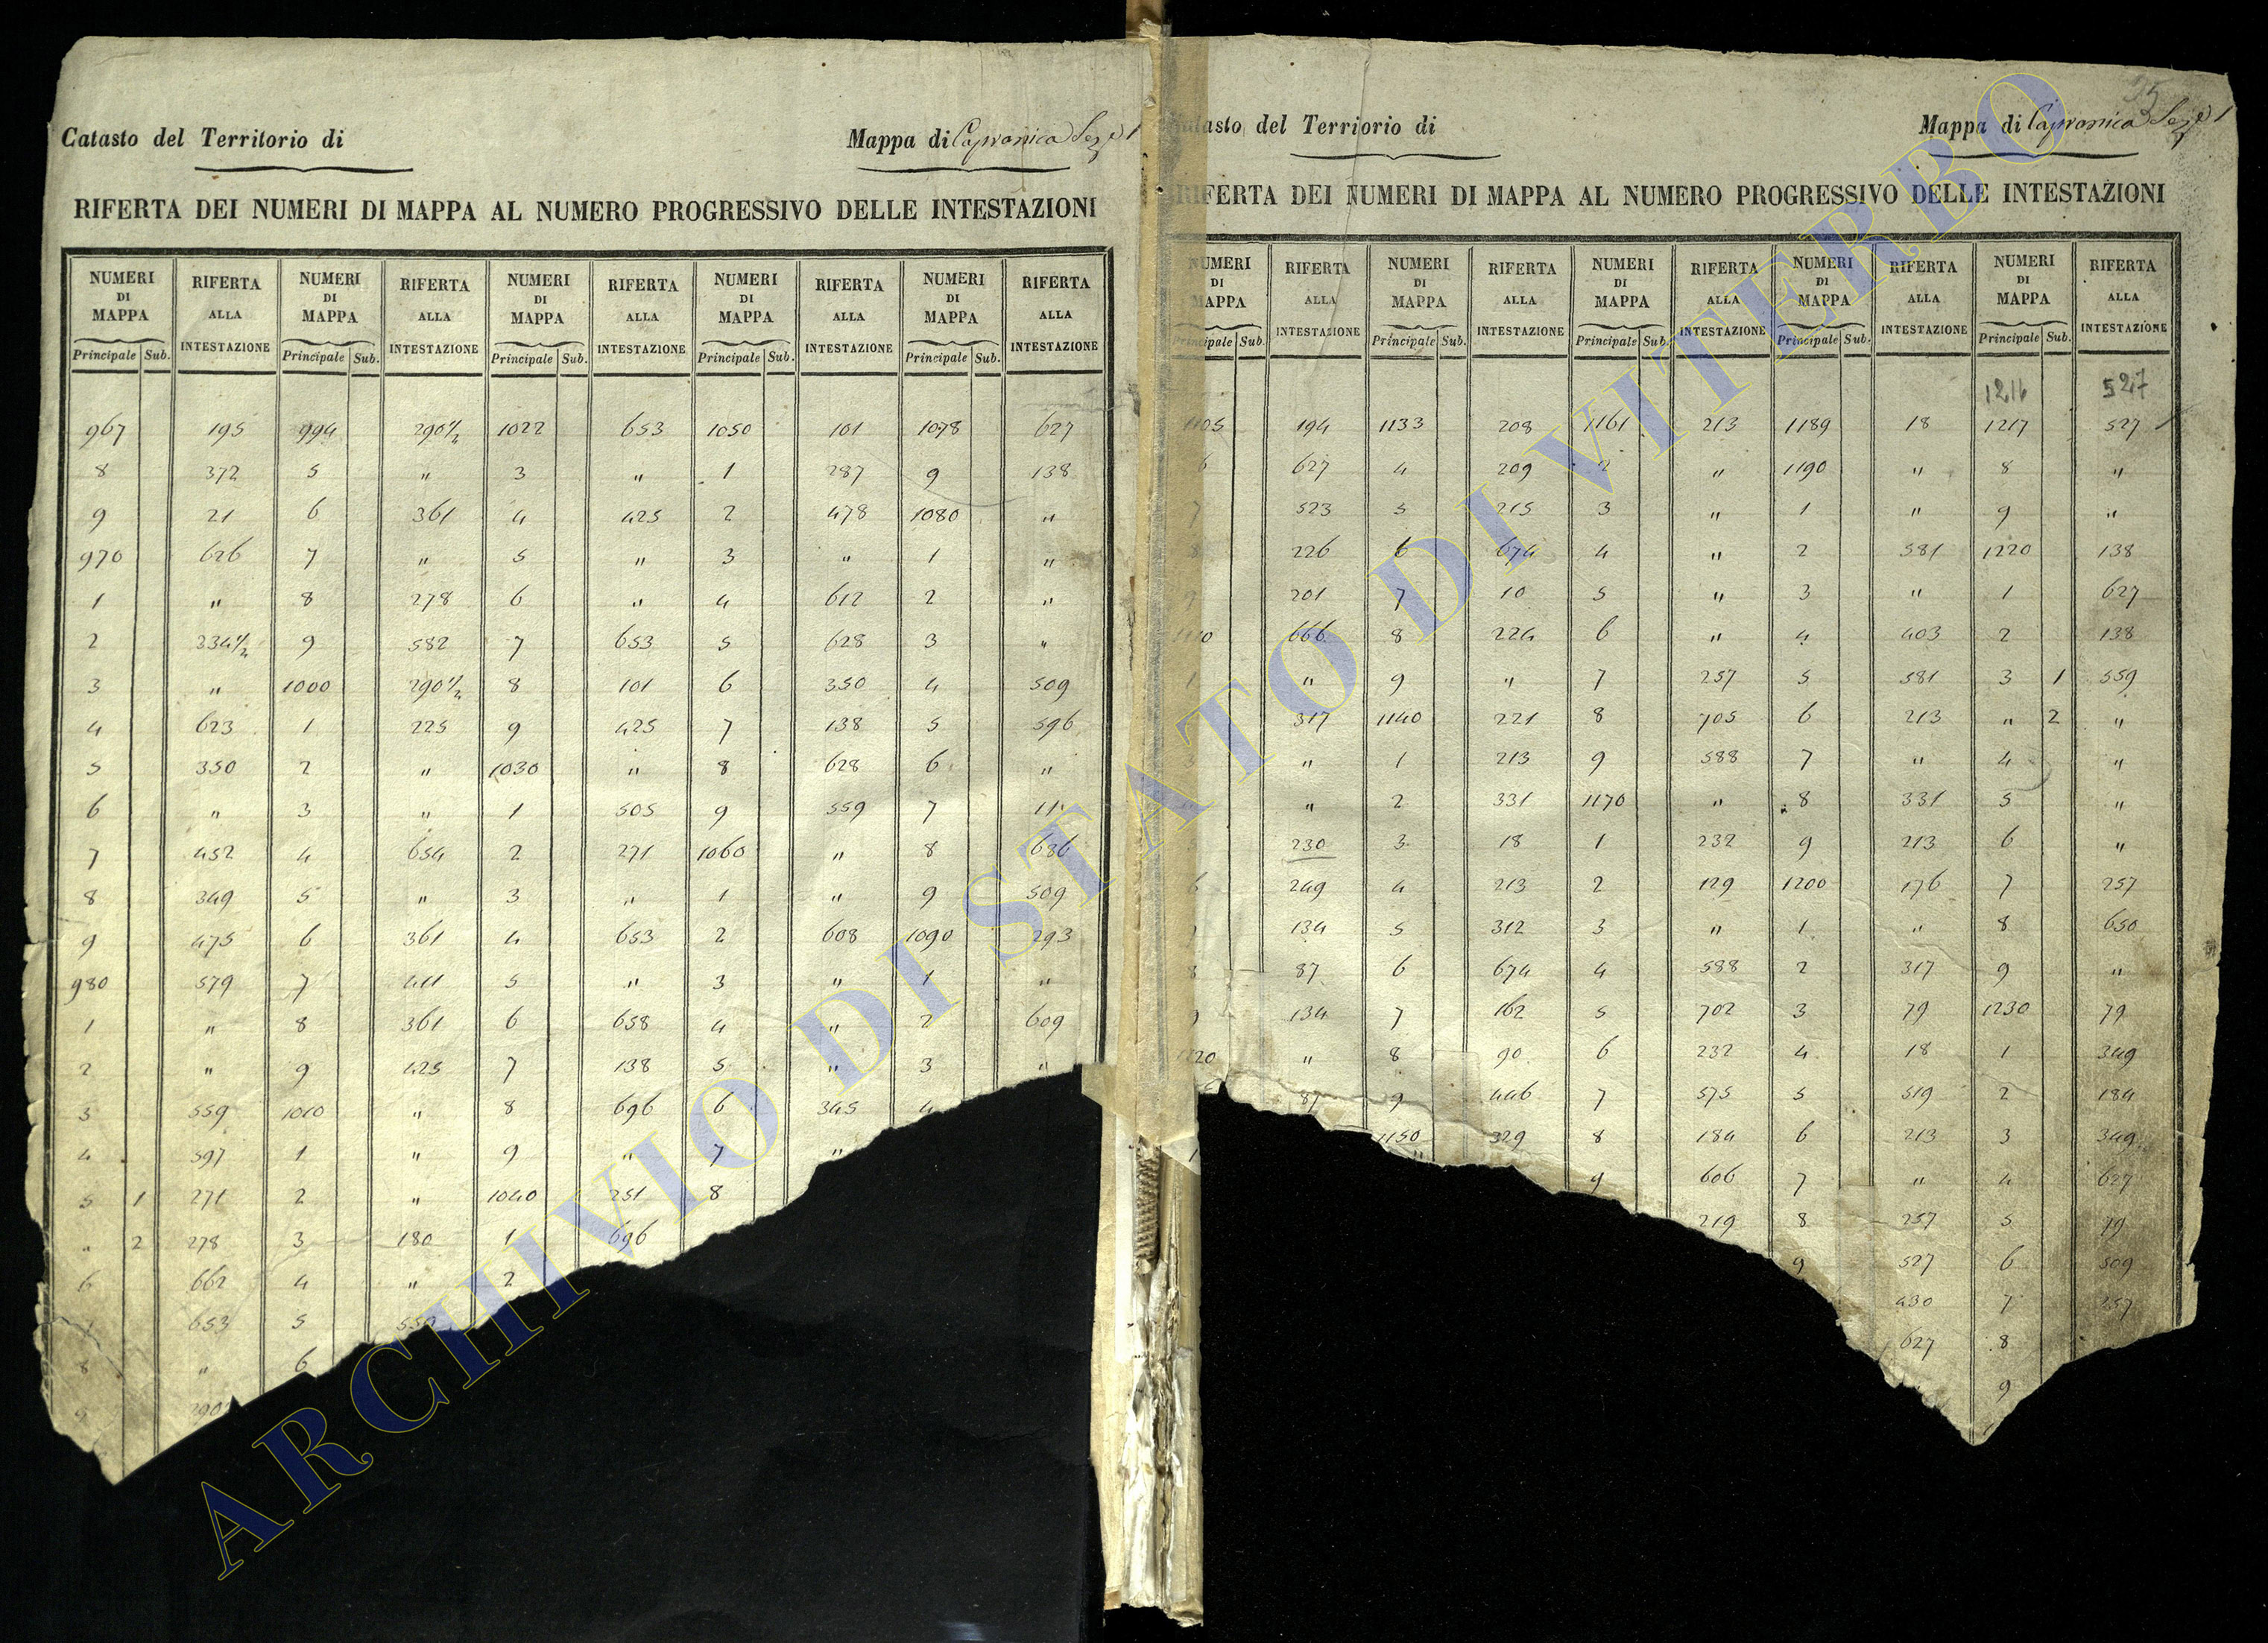 Catasto del Territorio di
Mappa di Capranica Sez.e 1
RIFERTA DEI NUMERI DI MAPPA AL NUMERO PROGRESSIVO DELLE INTESTAZIONI
NUMERI DI MAPPA RIFERTA ALLA INTESTAZIONE NUMERI DI MAPPA RIFERTA ALLA INTESTAZIONE NUMERI DI MAPPA RIFERTA ALLA INTESTAZIONE NUMERI DI MAPPA RIFERTA ALLA INTESTAZIONE NUMERI DI MAPPA RIFERTA ALLA INTESTAZIONE
Principale Sub. Principale Sub. Principale Sub. Principale Sub. Principale Sub.
967 195 994 290 1/2 1022 653 1050 101 1078 627
8 372 5 " 3 " 1 287 9 138
9 21 6 361 4 425 2 478 1080 "
970 626 7 " 5 " 3 " 1 "
1 " 8 278 6 " 4 612 2 "
2 334 1/2 9 582 7 653 5 628 3 "
3 " 1000 290 1/2 8 101 6 350 4 509
4 623 1 225 9 425 7 138 5 596
5 350 2 " 1030 " 8 628 6 "
6 " 3 " 1 505 9 559 7
7 452 4 654 2 271 1060 " 8 686
8 349 5 " 3 " 1 " 9 509
9 475 6 361 4 653 2 608 1090 293
980 579 7 411 5 " 3 " 1 "
1 " 8 361 6 658 4 " 2 609
2 " 9 425 7 138 5 " 3 "
3 559 1010 " 8 696 6 345 4
4 597 1 " 9 " 7 "
5 1 271 2 " 1040 251 8
" 2 278 3 180 1 696
6 662 4 " 2
653 5 559
8 " 6
9 290
Catasto del Terriorio di
Mappa di Capranica Sez.e 1
RIFERTA DEI NUMERI DI MAPPA AL NUMERO PROGRESSIVO DELLE INTESTAZIONI
NUMERI DI MAPPA RIFERTA ALLA INTESTAZIONE NUMERI DI MAPPA RIFERTA ALLA INTESTAZIONE NUMERI DI MAPPA RIFERTA ALLA INTESTAZIONE NUMERI DI MAPPA RIFERTA ALLA INTESTAZIONE NUMERI DI MAPPA RIFERTA ALLA INTESTAZIONE
Principale Sub. Principale Sub. Principale Sub. Principale Sub. Principale Sub.
1216 527
1105 194 1133 208 1161 213 1189 18 1217 527
6 627 4 209 2 " 1190 " 8 "
7 523 5 215 3 " 1 " 9 "
8 226 6 674 4 " 2 581 1220 138
9 201 7 10 5 " 3 " 1 627
1110 666 8 224 6 " 4 403 2 138
1 " 9 " 7 257 5 581 3 1 559
317 1140 221 8 705 6 213 " 2 "
3 " 1 213 9 588 7 " 4 "
" 2 331 1170 " 8 331 5 "
230 3 18 1 232 9 213 6 "
6 249 4 213 2 129 1200 176 7 257
134 5 312 3 " 1 " 8 650
8 87 6 674 4 588 2 317 9 "
9 134 7 162 5 702 3 79 1230 79
1120 " 8 90 6 232 4 18 1 349
87 9 446 7 575 5 519 2 184
1150 329 8 184 6 213 3 349
1 " 9 606 7 " 4 627
219 8 257 5 79
9 527 6 509
430 7 257
627 8
9
ARCHIVIO DI STATO DI VITERBO